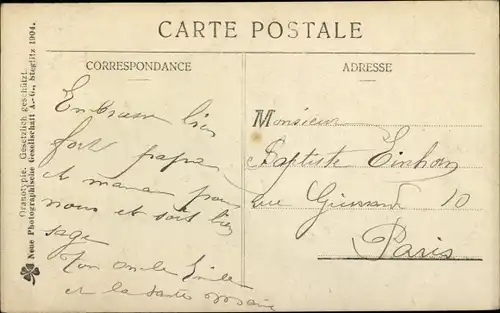 CARTE POSTALE
CORRESPONDANCE
ADRESSE
Embrasse bien
fort papa
et maman pour
nous et soit bien
sage
Ton oncle
et la
Monsieur
Baptiste Einhorn
rue 10
Paris
Oranotypie. Gesetzlich geschützt.
Neue Photographische Gesellschaft A.-G., Steglitz 1904.